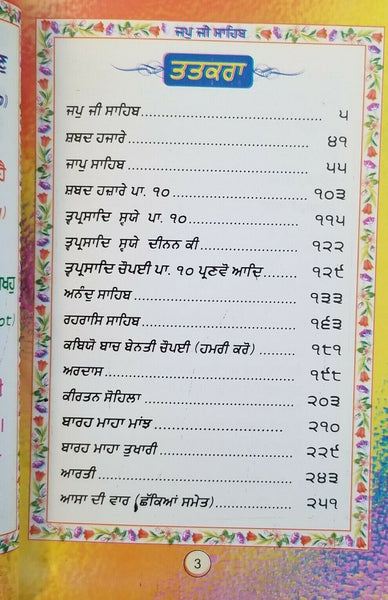 ਜਪੁ ਜੀ ਸਾਹਿਬ
ਤਤਕਰਾ
ਜਪੁ ਜੀ ਸਾਹਿਬ.............................................੫
ਸ਼ਬਦ ਹਜਾਰੇ..............................................੪੧
ਜਾਪੁ ਸਾਹਿਬ..............................................੫੫
ਸ਼ਬਦ ਹਜ਼ਾਰੇ ਪਾ. ੧੦..............................੧੦੩
ਤ੍ਵਪ੍ਰਸਾਦਿ ਸ੍ਵਯੇ ਪਾ. ੧੦..........................੧੧੫
ਤ੍ਵਪ੍ਰਸਾਦਿ ਸ੍ਵਯੇ ਦੀਨਨ ਕੀ.......................੧੨੨
ਤ੍ਵਪ੍ਰਸਾਦਿ ਚੌਪਈ ਪਾ. ੧੦ ਪ੍ਰਣਵੋ ਆਦਿ.........੧੨੯
ਅਨੰਦੁ ਸਾਹਿਬ.........................................੧੩੩
ਰਹਰਾਸਿ ਸਾਹਿਬ.....................................੧੬੩
ਕਬਿਯੋ ਬਾਚ ਬੇਨਤੀ ਚੌਪਈ (ਹਮਰੀ ਕਰੋ) ............੧੮੧
ਅਰਦਾਸ..............................................੧੯੮
ਕੀਰਤਨ ਸੋਹਿਲਾ....................................੨੦੩
ਬਾਰਹ ਮਾਹਾ ਮਾਂਝ..................................੨੧੦
ਬਾਰਹ ਮਾਹਾ ਤੁਖਾਰੀ...............................੨੨੯
ਆਰਤੀ...............................................੨੪੩
ਆਸਾ ਦੀ ਵਾਰ (ਛੱਕਿਆਂ ਸਮੇਤ)..................੨੫੧
3